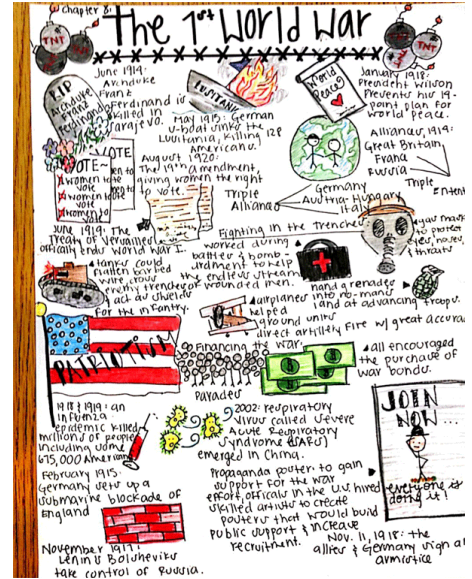 Chapter 8:
The 1st World War
TNT
TNT
TNT
R.I.P
Archduke
Franz
Ferdinand
June 1914:
Archduke
Franz
Ferdinand is
killed in
Sarajevo.
LUSITANIA
May 1915: German
U-boat sinks the
Lusitania, killing 128
Americans.
World
Peace
January 1918:
President Wilson
Presents his 14-
point plan for
world peace.
VOTE
VOTE~
women to
vote
women to
vote
women to
August 1920:
The 19th amendment
giving women the right
to vote.
Alliances, 1914:
Great Britain
France
Russia
Triple
Entente
Triple
Alliance
Germany
Austria-Hungary
Italy
June 1919: The
Treaty of Versailles
officially ends World War I.
Fighting in the Trenches
worked during
battles & bomb-
ardment to help
the endless stream
of wounded men.
gas masks
to protect
eyes, noses
& throats
tanks could
flatten barbed
wire, cross
enemy trenches
& act as shields
for the infantry.
hand grenades
into no-man's
land at advancing troops.
airplanes
helped
ground units
direct artillery fire w/ great accura
PATRIOTISM
Financing the war:
Parades
all encouraged
the purchase of
war bonds.
1918 & 1919: an
influenza
epidemic killed
millions of people
including some
675,000 Americans
2002: respiratory
virus called Severe
Acute Respiratory
Syndrome (SARS)
emerged in China.
JOIN
NOW...
everyone is
doing it!
February 1915:
Germany sets up a
submarine blockade of
England
Propaganda poster: to gain
support for the war
effort, officials in the U.S. hired
skilled artists to create
posters that would build
public support & increase
recruitment.
November 1917:
Lenin's Bolsheviks
take control of Russia.
Nov. 11, 1918: the
allies & Germany sign a
armistice